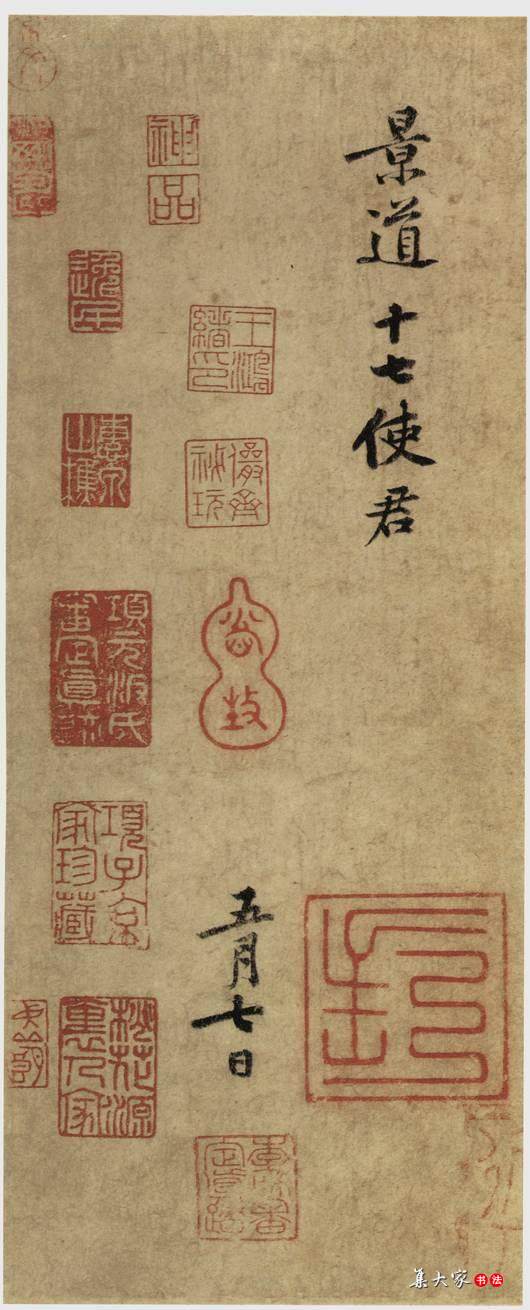 景道十七使君
封
五月七日
王鴻緒印
儼齋秘玩
神品
項元汴氏審定真跡
項子京家珍藏
桃花源里人家
集大家書法